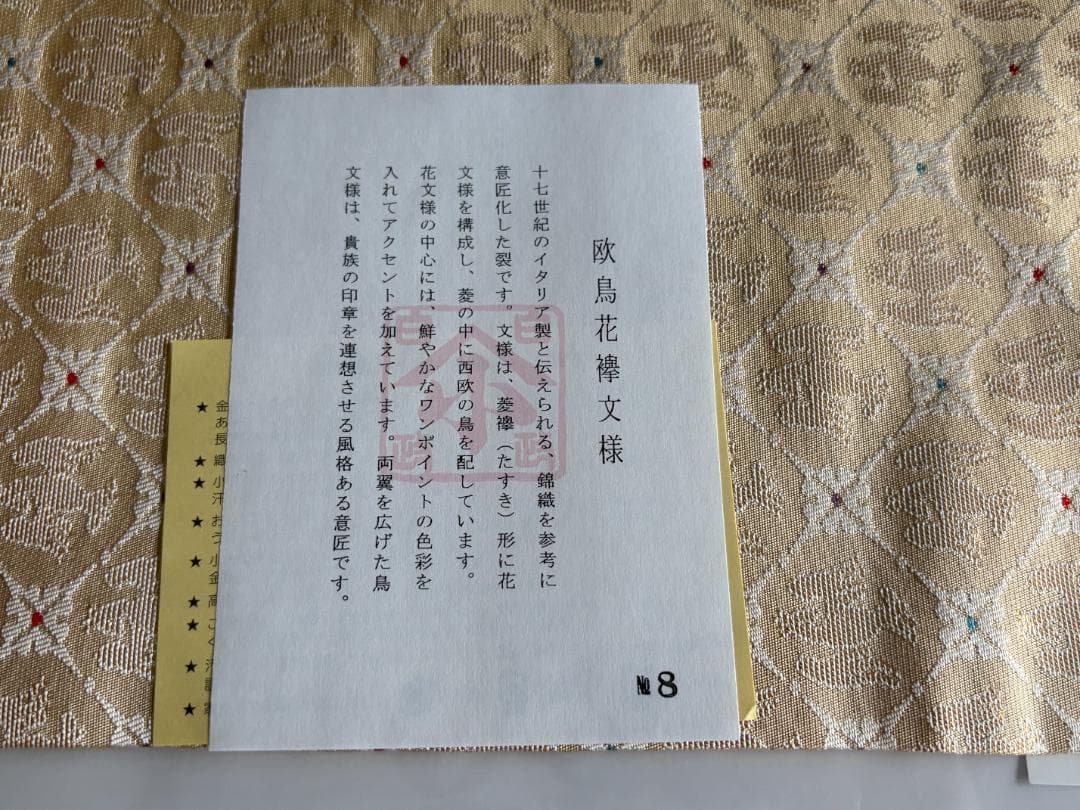 欧鳥花襷文様
十七世紀のイタリア製と伝えられる、錦織を参考に
意匠化した裂です。文様は、菱襷（たすき）形に花
文様を構成し、菱の中に西欧の鳥を配しています。
花文様の中心には、鮮やかなワンポイントの色彩を
入れてアクセントを加えています。両翼を広げた鳥
文様は、貴族の印章を連想させる風格ある意匠です。
№8
★金
あ
長
★織
★小
汗
★お
う
★小
金
★高
★ご
く
★
★